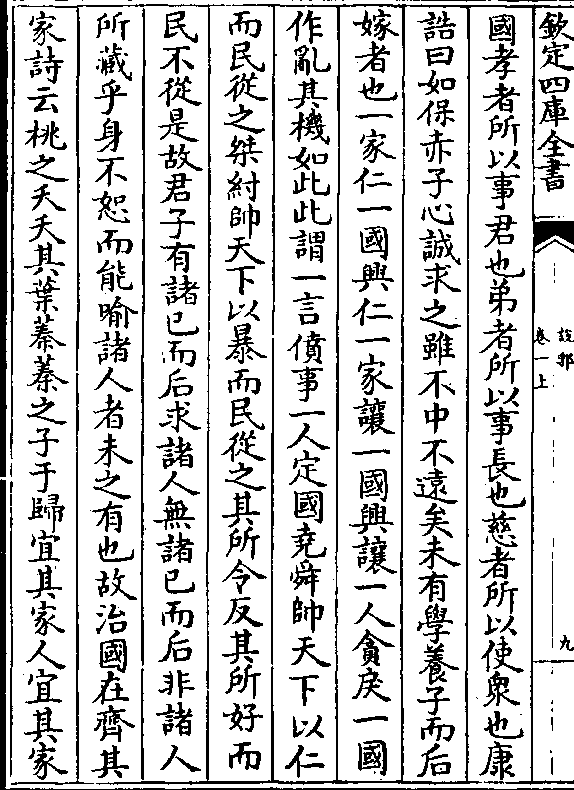 欽定四庫全書
說郛
卷一上
九
國孝者所以事君也弟者所以事長也慈者所以使衆也康
誥曰如保赤子心誠求之雖不中不遠矣未有學養子而后
嫁者也一家仁一國興仁一家讓一國興讓一人貪戾一國
作亂其機如此此謂一言僨事一人定國堯舜帥天下以仁
而民從之桀紂帥天下以暴而民從之其所令反其所好而
民不從是故君子有諸已而后求諸人無諸已而后非諸人
所藏乎身不恕而能喻諸人者未之有也故治國在齊其
家詩云桃之夭夭其葉蓁蓁之子于歸宜其家人宜其家